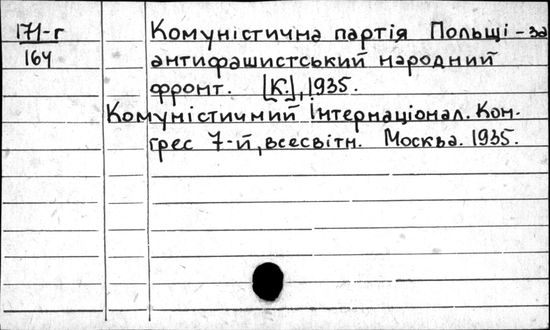 171-г
164
Комуністична партія Польщі - за
антифашистський народний
фронт. [К.], 1935.
Комуністичний Інтернаціонал. Кон-
грес 7-й, всесвітн. Москва. 1935.